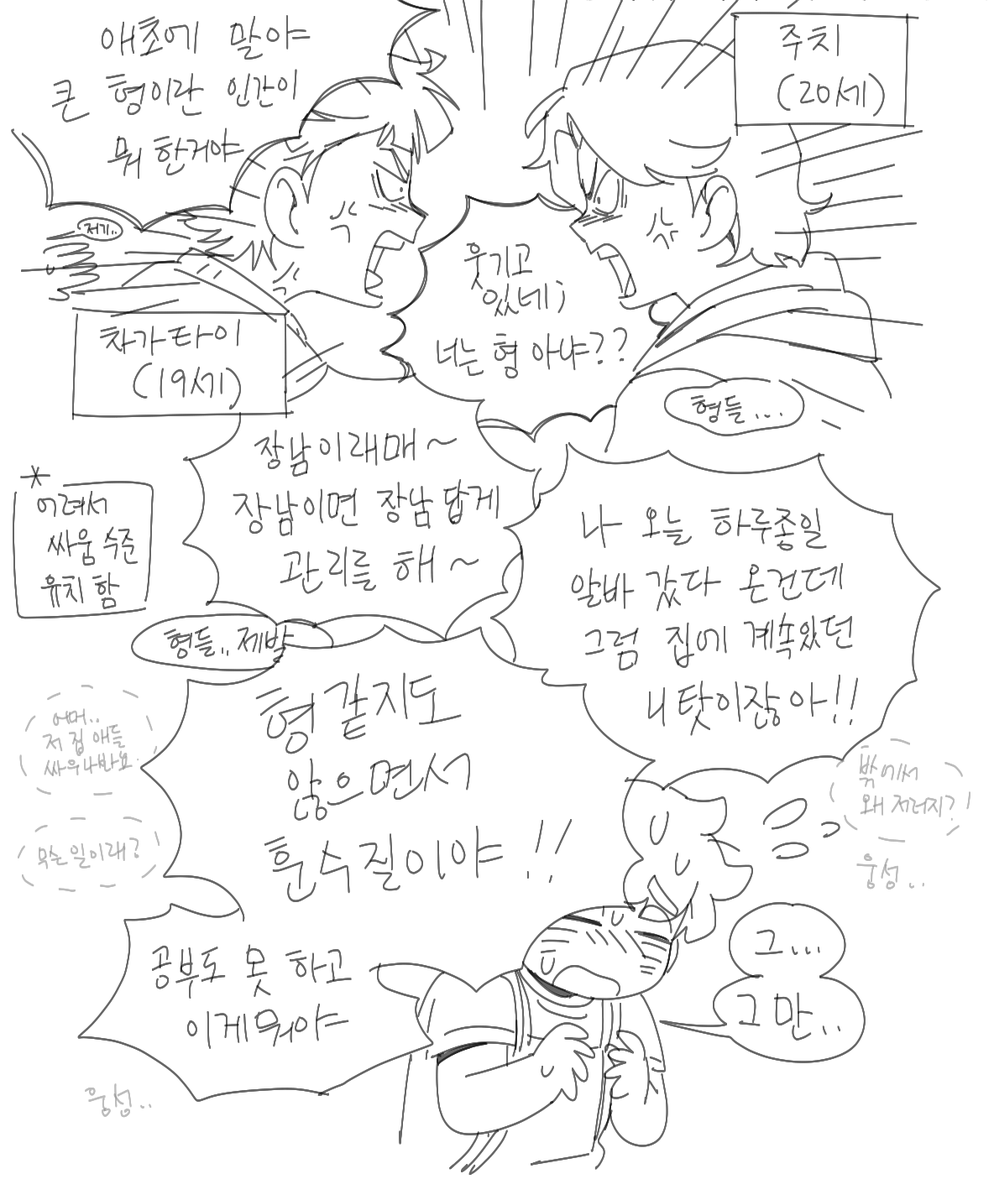 애초에 말야
큰 형이란 인간이
뭐 한거야
주치
(20세)
저기..
웃기고
있네;
너는 형 아냐??
차가타이
(19세)
형들...
장남이래매~
장남이면 장남답게
관리를 해~
*
어려서
싸움 수준
유치함
나 오늘 하루종일
알바 갔다 온건데
그럼 집에 계속있던
니 탓이잖아!!
형들.. 제발
형 같지도
않으면서
훈수질이야!!
어머..
저 집 애들
싸우나봐요
무슨일이래?
밖에서
왜 저러지?!
웅성..
공부도 못 하고
이게 뭐야
그...
그만..
웅성..